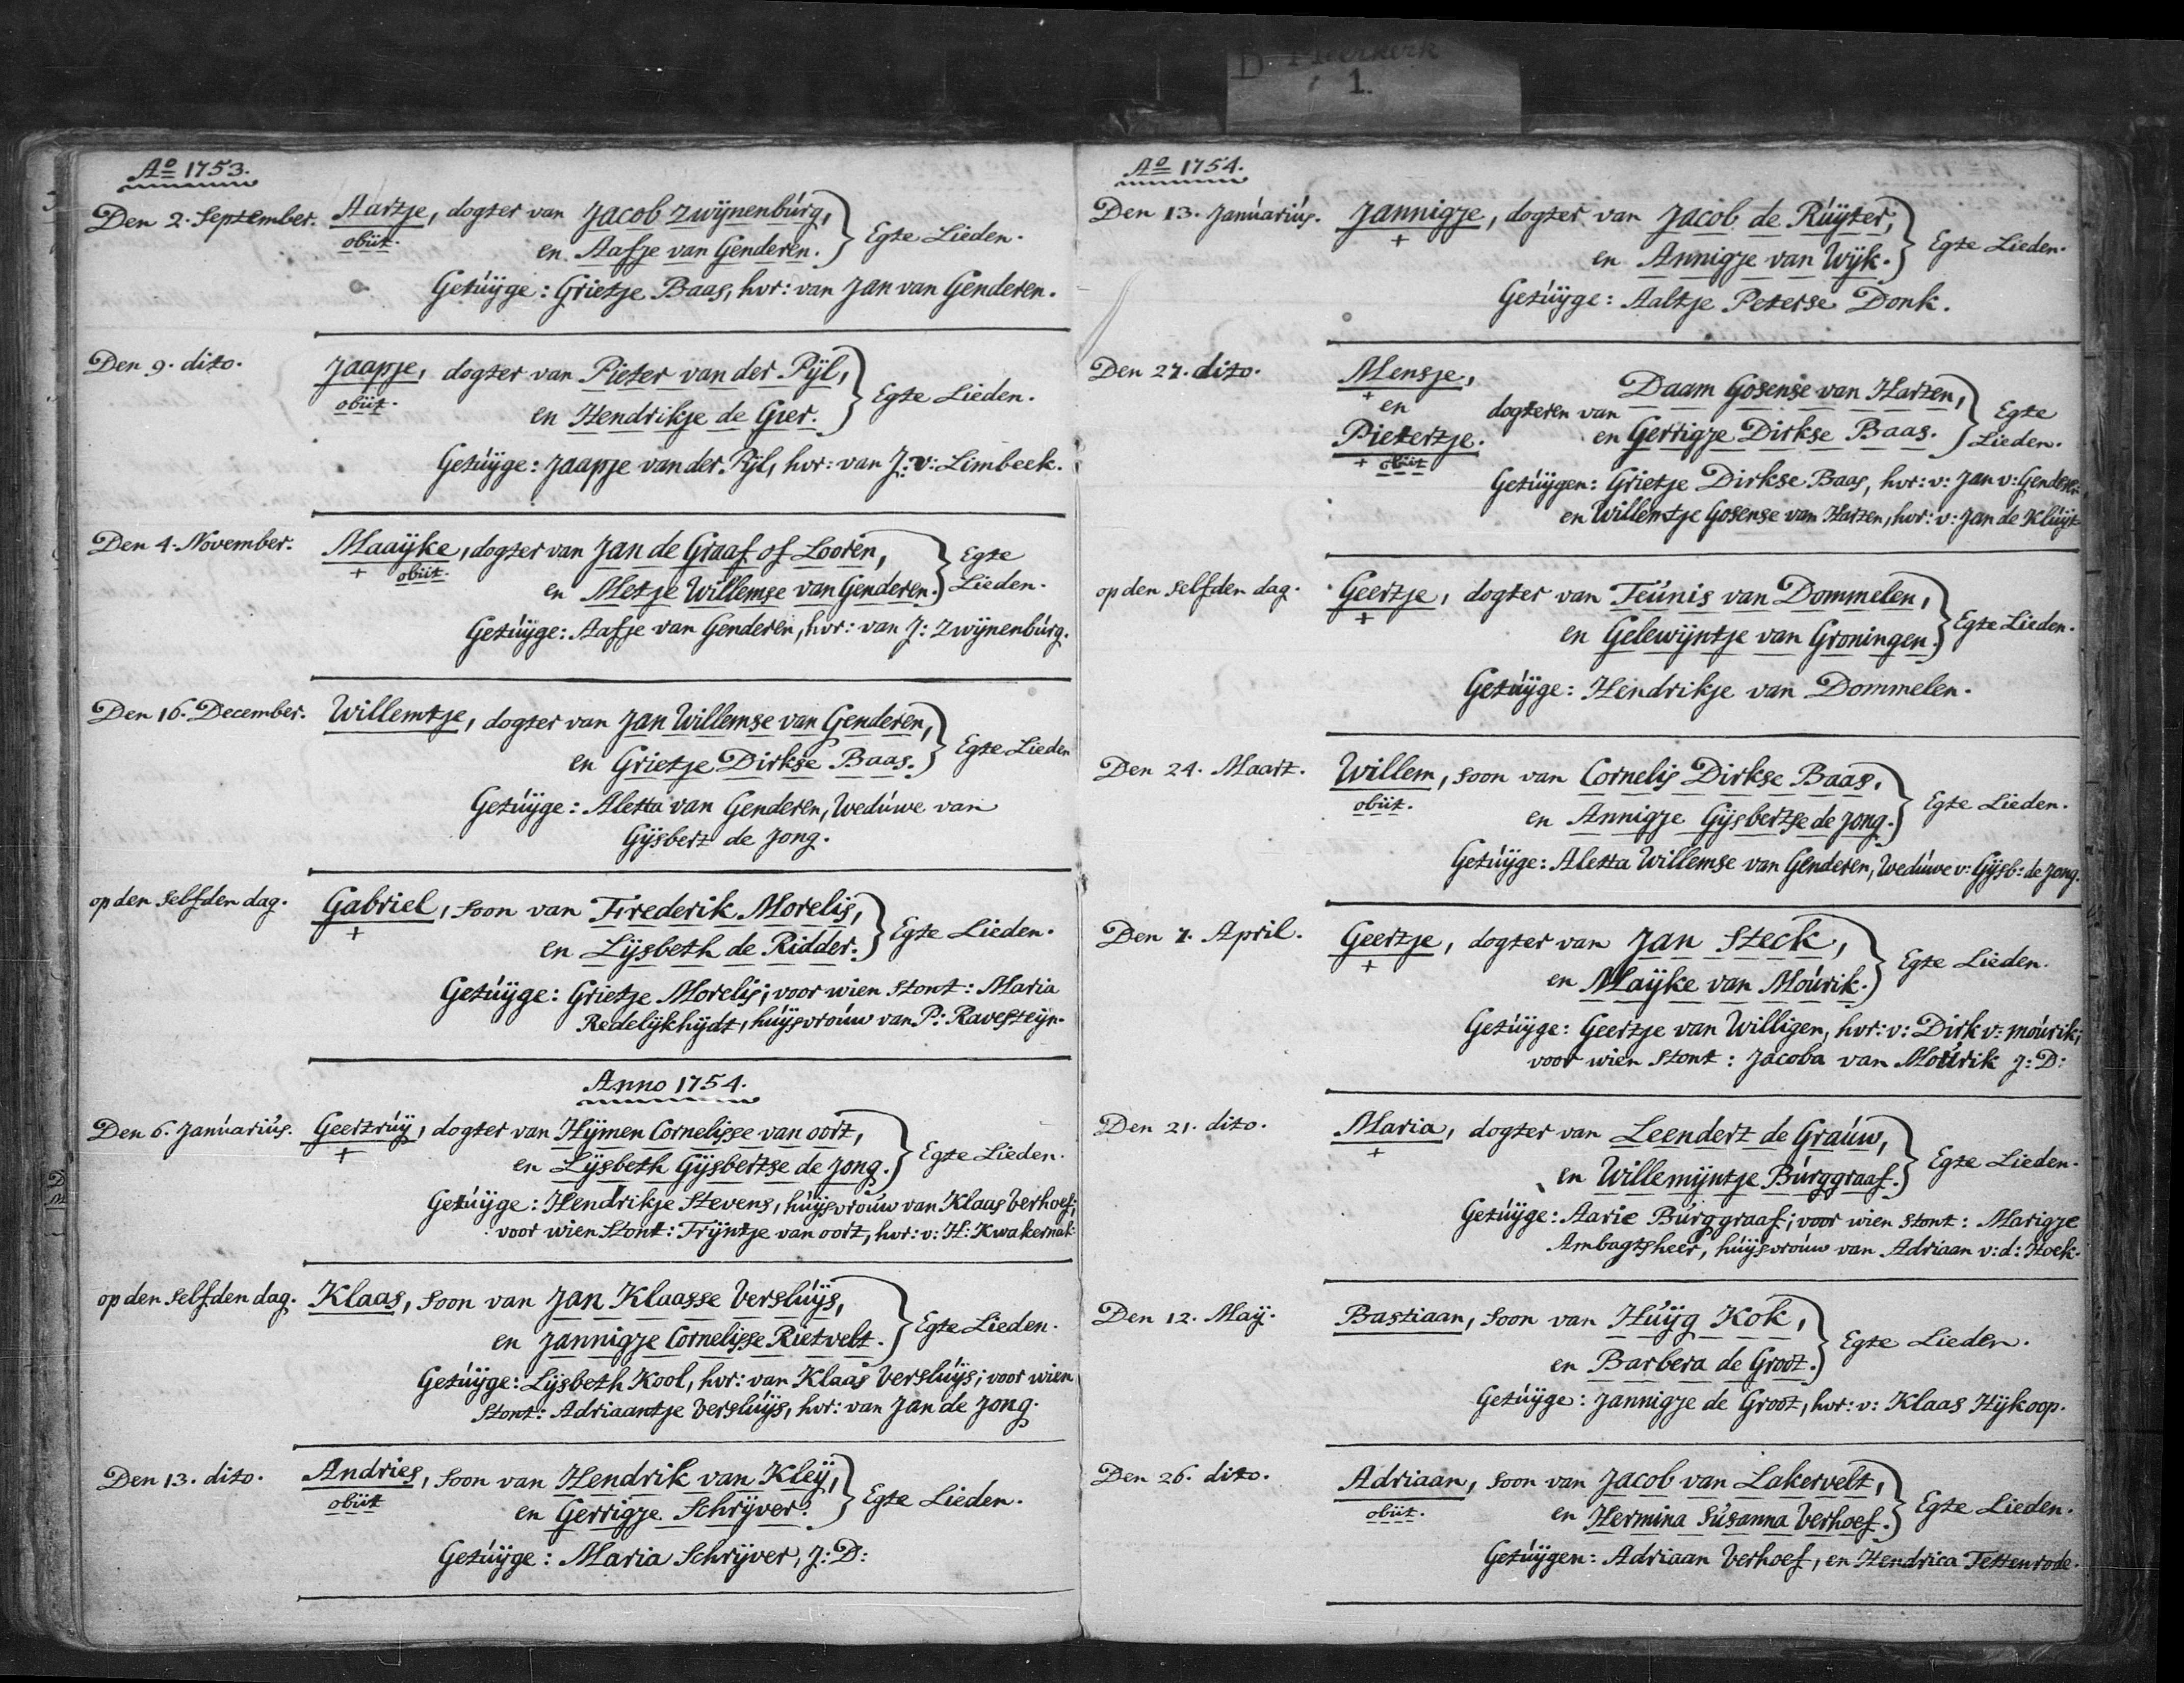 D Meerkerk
1.
Aº 1753.
Den 2. September. Aartje, dogter van Jacob Zwijnenburg,
obiit. en Aafje van Genderen. } Egte Lieden.
Getúÿge: Grietje Baas, hvr: van Jan van Genderen.
Den 9. dito. Jaapje, dogter van Pieter van der Pÿl,
obiit. en Hendrikje de Gier. } Egte Lieden.
Getúÿge: Jaapje van der Pÿl, hvr: van J: v: Limbeek.
Den 4. November. Maaÿke, dogter van Jan de Graaf of Looren, } Egte
+ obiit. en Metje Willemse van Genderen. Lieden.
Getúÿge: Aafje van Genderen, hvr: van J: Zwÿnenbúrg.
Den 16. December. Willemtje, dogter van Jan Willemse van Genderen,
en Grietje Dirkse Baas. } Egte Lieden
Getúÿge: Aletta van Genderen, Wedúwe van
Gÿsbert de Jong.
op den selfden dag. Gabriel, soon van Frederik Morelis,
+ en Lÿsbeth de Ridder. } Egte Lieden.
Getúÿge: Grietje Morelis; voor wien stont: Maria
Redelÿkhÿdt, húÿsvroúw van P: Ravesteÿn.
Anno 1754.
Den 6. Janúariús. Geertrúÿ, dogter van Hÿmen Cornelisse van oort,
+ en Lÿsbeth Gÿsbertse de Jong. } Egte Lieden.
Getúÿge: Hendrikje Stevens, húÿsvroúw van Klaas Verhoef;
voor wien stont: Trÿntje van oort, hvr: v: H: Kwakernak.
op den selfden dag. Klaas, soon van Jan Klaasse Verslúÿs,
en Jannigje Cornelisse Rietvelt. } Egte Lieden.
Getúÿge: Lÿsbeth Kool, hvr: van Klaas Verslúÿs; voor wien
stont: Adriaantje Verslúÿs, hvr: van Jan de Jong.
Den 13. dito. Andries, soon van Hendrik van Kleÿ,
obiit en Gerrigje Schrÿver. } Egte Lieden.
Getúÿge: Maria Schrÿver, J: D:
Aº 1754.
Den 13. Janúariús. Jannigje, dogter van Jacob de Rúÿter,
+ en Annigje van Wÿk. } Egte Lieden.
Getúÿge: Aaltje Peterse Donk.
Den 27. dito. Mensje,
+ en dogteren van Daam Gosense van Harten, } Egte
Pietertje. en Gerrigje Dirkse Baas. Lieden.
+ obiit
Getúÿgen: Grietje Dirkse Baas, hvr: v: Jan v: Genderen
en Willemtje Gosense van Harten, hvr: v: Jan de Klúÿt
op den selfden dag. Geertje, dogter van Teúnis van Dommelen,
+ en Gelewÿntje van Groningen. } Egte Lieden.
Getúÿge: Hendrikje van Dommelen.
Den 24. Maart. Willem, soon van Cornelis Dirkse Baas,
obiit. en Annigje Gÿsbertse de Jong. } Egte Lieden.
Getúÿge: Aletta Willemse van Genderen, Wedúwe v: Gÿsb: de Jong.
Den 7. April. Geertje, dogter van Jan Steck,
+ en Maÿke van Moúrik. } Egte Lieden.
Getúÿge: Geertje van Willigen, hvr: v: Dirk v: moúrik;
voor wien stont: Jacoba van Moúrik J: D:
Den 21. dito. Maria, dogter van Leendert de Graúw,
+ en Willemÿntje Búrggraaf. } Egte Lieden.
Getúÿge: Aarie Búrggraaf; voor wien stont: Marigje
Ambagtsheer, húÿsvroúw van Adriaan v: d: Hoek.
Den 12. Maÿ. Bastiaan, soon van Húÿg Kok,
en Barbera de Groot. } Egte Lieden.
Getúÿge: Jannigje de Groot, hvr: v: Klaas Hÿkoop.
Den 26. dito. Adriaan, soon van Jacob van Lakervelt,
obiit. en Hermina Súsanna Verhoef. } Egte Lieden.
Getúÿgen: Adriaan Verhoef, en Hendrica Tettenrode.